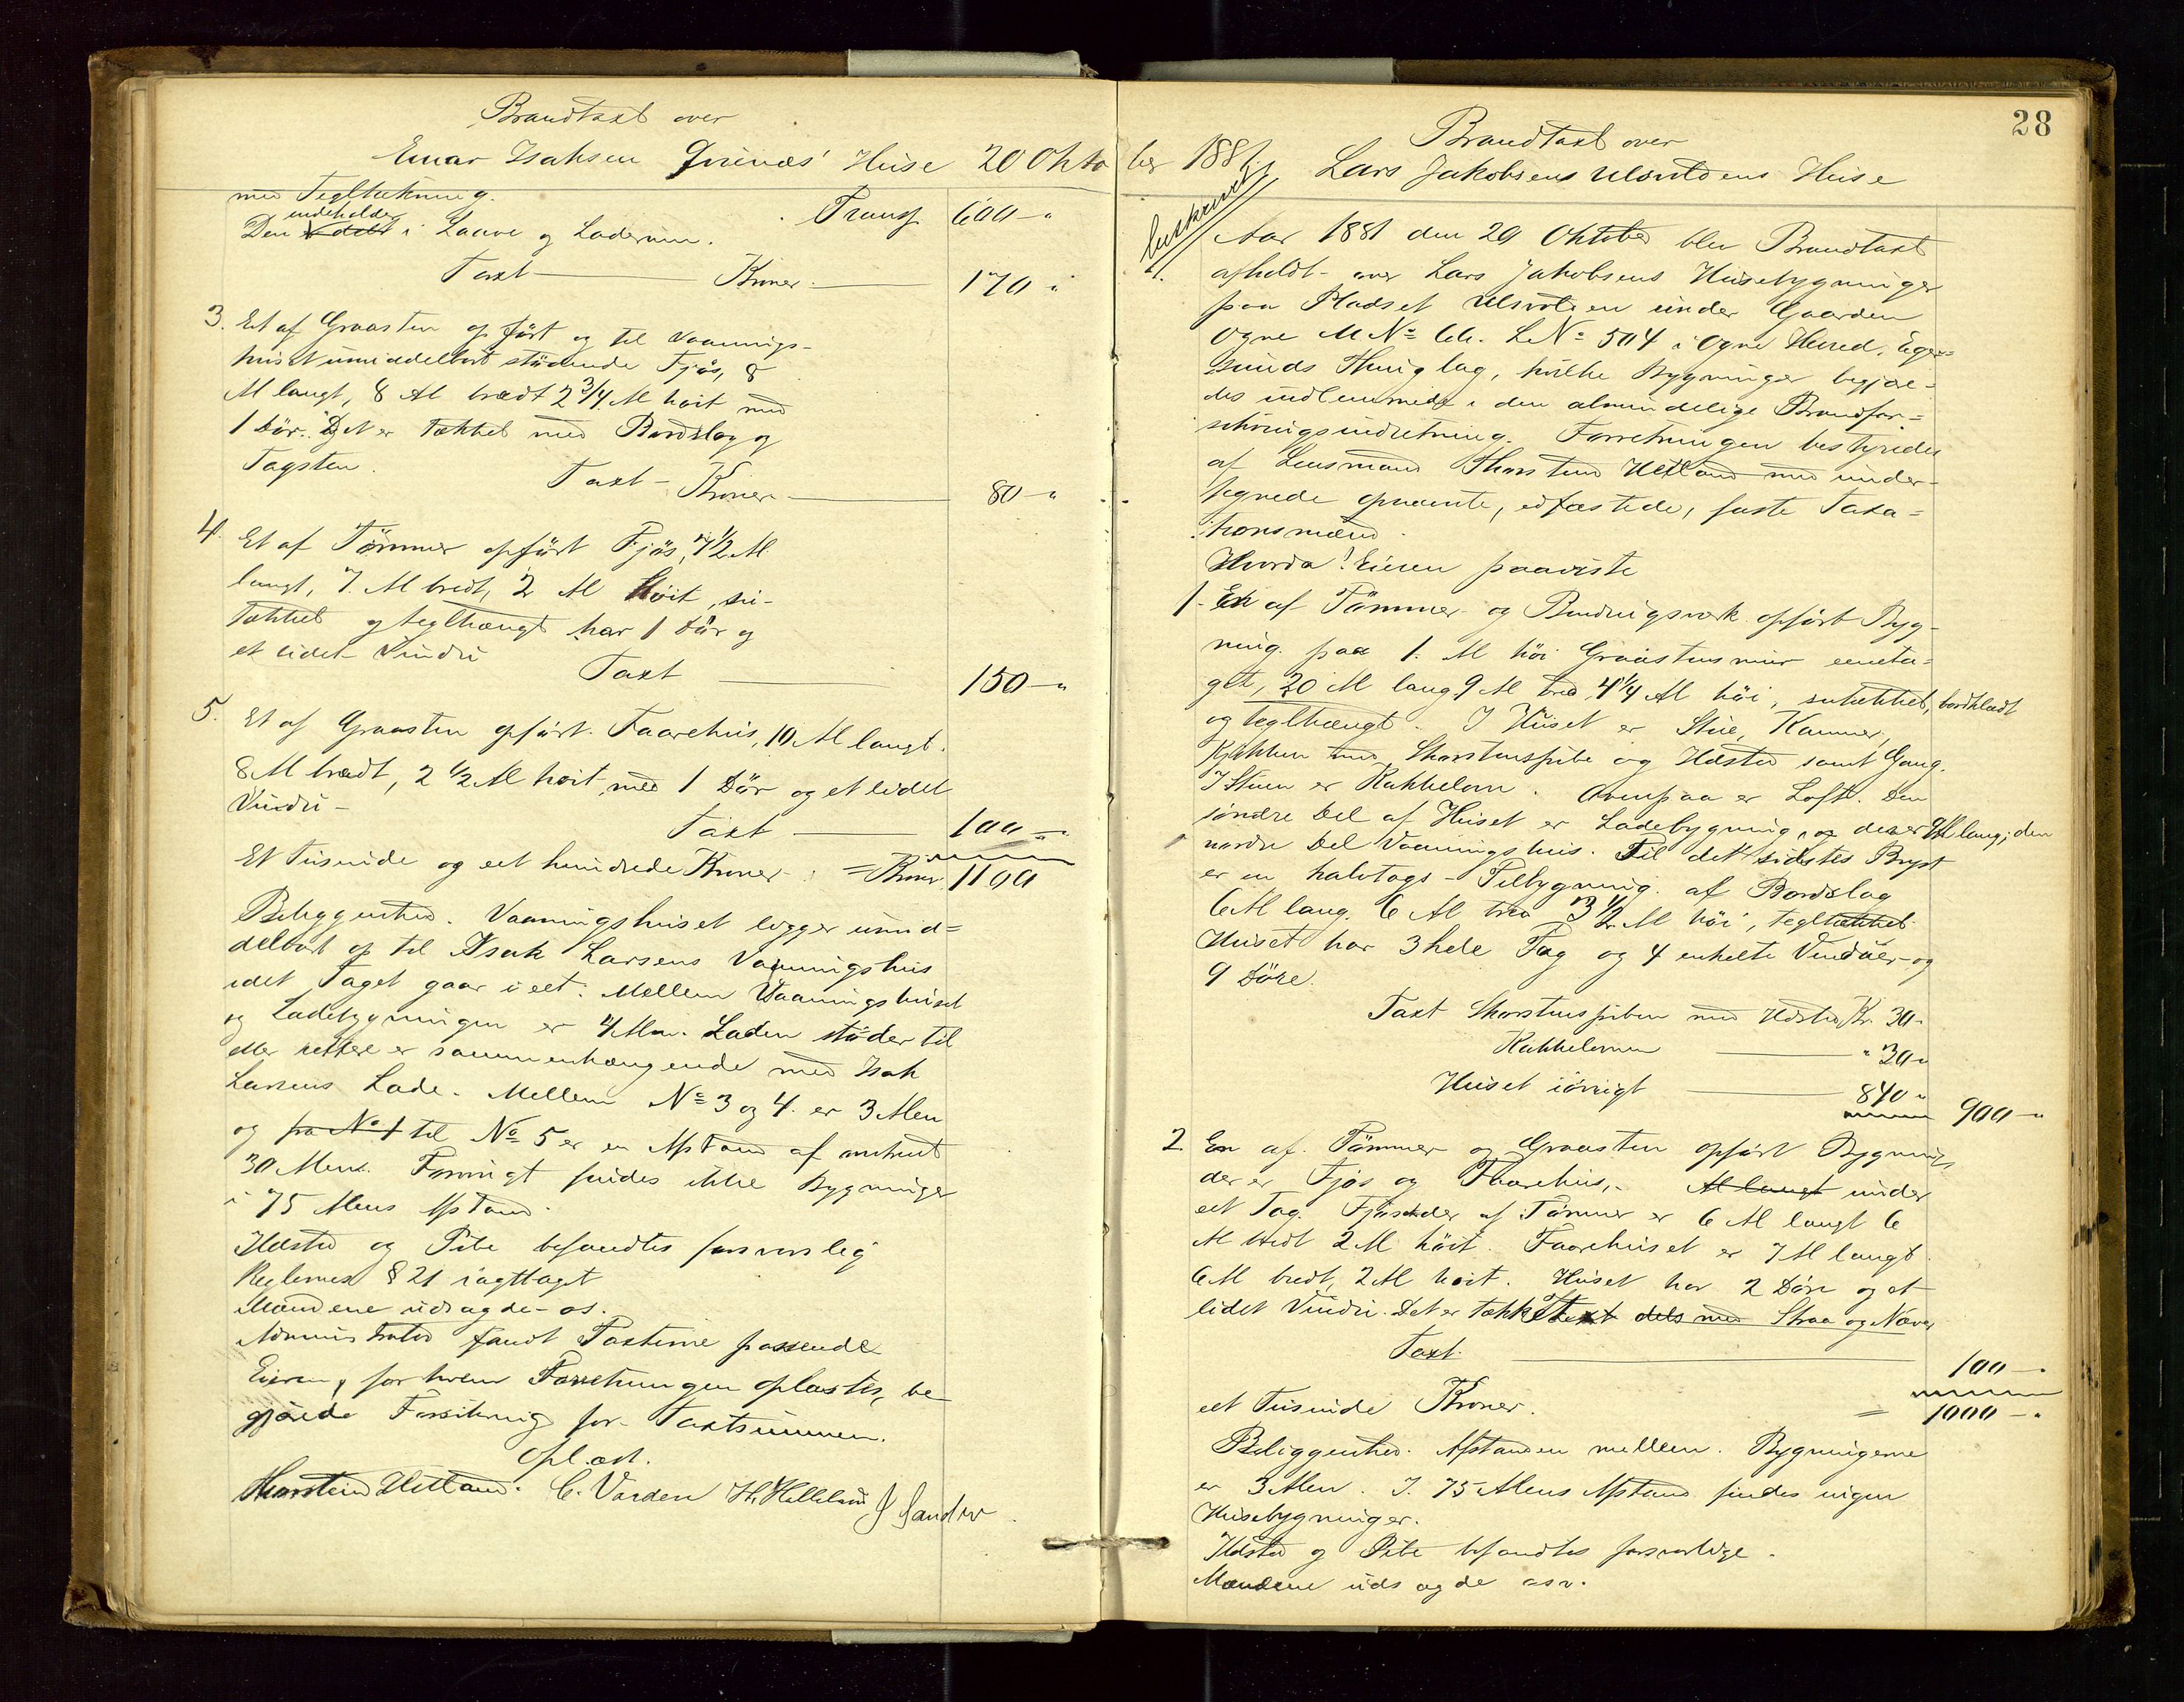 Brandtaxt over
Einar Isaksen Qvines' Huse 20 Okto
med Tegltækning.
indeholder
Den i Laave og Laderum. Transp. 600 - "
Taxt Kroner 170 "
3. Et af Graasten opført og til Vaanings-
huset umiddelbart stødende Fjøs, 8
Al langt, 8 Al bredt 2 3/4 Al høit med
1 Dør. Det er tækket med Bordslag og
Tagsten.
Taxt - Kroner 80 - "
4. Et af Tømmer opført Fjøs, 7 1/2 Al
langt, 7 Al bredt, 2 Al høit, su-
tækket og teglhængt har 1 Dør og
et lidet Vindu
Taxt 150 - "
5. Et af Graasten opført Faarehus, 10 Al langt.
8 Al bredt, 2 1/2 Al høit, med 1 Dør og et lidet
Vindu -
Taxt 100 - "
Et Tusinde og eet hundrede Kroner = Kroner 1100
Beliggenhed. Vaaningshuset ligger umid=
delbart op til Isak Larsens Vaaningshus
idet Taget gaar i eet. Mellem Vaaningshuset
og Ladebygningen er 4 Alen. Laden støder til
eller rettere er sammenhængende med Isak
Larsens Lade. Mellem No 3 og 4 er 3 Alen
og fra No 1 til No 5 er en Afstand af omtrent
30 Alen. Forøvrigt findes ikke Bygninger
i 75 Alens Afstand.
Ildsted og Pibe befandtes forsvarlig
Reglernes § 21 iagttaget
Mændene udsagde - os.
Administrator fandt Taxterne passende
Eieren, for hvem Forretningen oplæstes, be
gjærede Forsikring for Taxtsummen.
Oplæst.
Thorstein Hetland. C. Varden H. Helleland J Sandve

28
ber 1881. Brandtaxt over
Lars Jakobsens Ulvoldens Huse
Indskrevet
Aar 1881 den 20 Oktober blev Brandtaxt
afholdt over Lars Jakobsens Husebygninger
paa Pladset Ulvolden under Gaarden
Ogne M No 66. L No 504 i Ogne Herred, Eger=
sunds Thinglag, hvilke Bygninger begjæ-
des indlemmede i den almindelige Brandfor=
sikringsindretning. Forretningen bestyredes
af Lensmand Thorstein Hetland med under-
tegnede opnævnte, edfæstede, faste Taxa=
tionsmænd.
Hvorda! Eieren paaviste
1. En af Tømmer og Bindingsværk opført Byg-
ning paa 1 Al høi Graastensmur eneta=
get, 20 Al lang 9 Al bred, 4 1/4 Al høi, sutækket, bordklædt
og teglhængt. I Huset er Stue, Kammer,
Kjøkken med Skorstenspibe og Ildsted samt Gang.
I Stuen er Kakkelovn. Ovenpaa er Loft. Den
søndre Del af Huset er Ladebygning, og den er 9 Al lang; den
nordre Del Vaaningshus. Til det sidstes Bryst
er en halvtags-Tilbygning af Bordslag
6 Al lang. 6 Al bred 3 1/2 Al høi, tegltækket
Huset har 3 hele Fag og 4 enkelte Vinduer og
9 Døre.
Taxt Skorstenspiben med Ildsted Kr. 30 -
Kakkelovnen " 30 "
Huset iøvrigt 840 " 900 - "
2. En af Tømmer og Graasten opført Bygning,
der er Fjøs og Faarehus, Al langt under
eet Tag. Fjøset der af Tømmer er 6 Al langt 6
Al bredt 2 Al høit. Faarehuset er 7 Al langt
6 Al bredt, 2 Al høit. Huset har 2 Døre og et
lidet Vindu. Det er tækket dels med Straa og Næver
Taxt 100 -
eet Tusinde Kroner. = 1000 - "
Beliggenhed. Afstanden mellem Bygningerne
er 3 Alen. I 75 Alens Afstand findes ingen
Husebygninger.
Ildsted og Pibe befandtes forsvarlige.
Mændene udsagde osv.